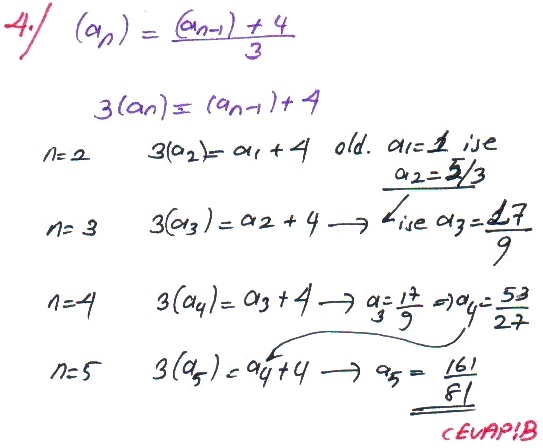 4./ (aₙ) = (aₙ₋₁) + 4 / 3
3(aₙ) = (aₙ₋₁) + 4
n=2 3(a₂) = a₁ + 4 old. a₁=1 ise
a₂=5/3
n=3 3(a₃) = a₂ + 4 → ise a₃ = 17/9
n=4 3(a₄) = a₃ + 4 → a₃ = 17/9 ⇒ a₄ = 53/27
n=5 3(a₅) = a₄ + 4 → a₅ = 161/81
CEVAP!B